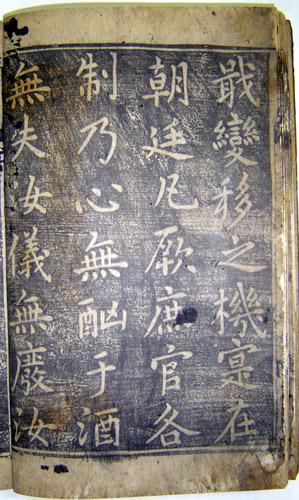 變移之機寔在
朝廷凡厥庶官各
制乃心無酗于酒
無失汝儀無廢汝